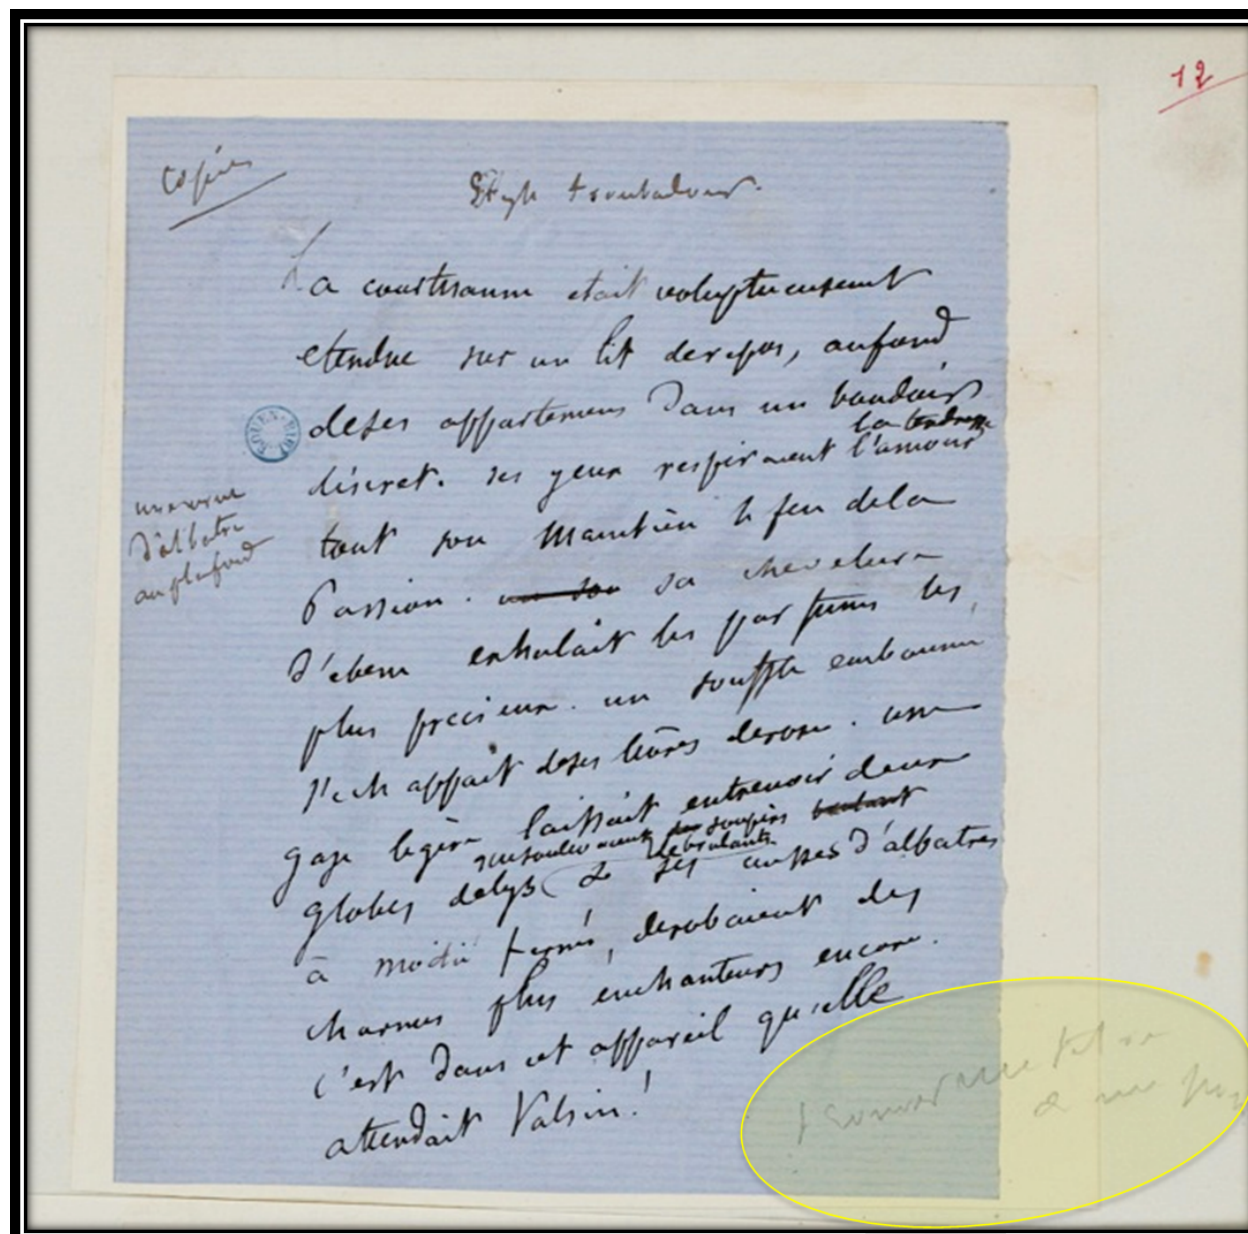 12
Copié
Style troubadour.
La courtisanne etait voluptueusement
etendue sur un lit de repos, au fond
de ses appartemens dans un boudoir
la tendresse
discret. ses yeux respiraient l'amour
tout son maintien le feu de la
Passion. un son sa chevelure
d'ebene exhalait les parfums les
plus precieux. un souffle embaumé
s'echappait de ses lèvres de rose. une
gaze legère laissait entrevoir deux
que soulevaient des soupirs brulant
brulants
globes de lys & ses
d'albatres
à moitié fermé, derobaient des
charmes plus enchanteurs encore.
c'est dans cet appareil qu'elle
attendait Valsin!
d'albatre
au plafond
ROUEN